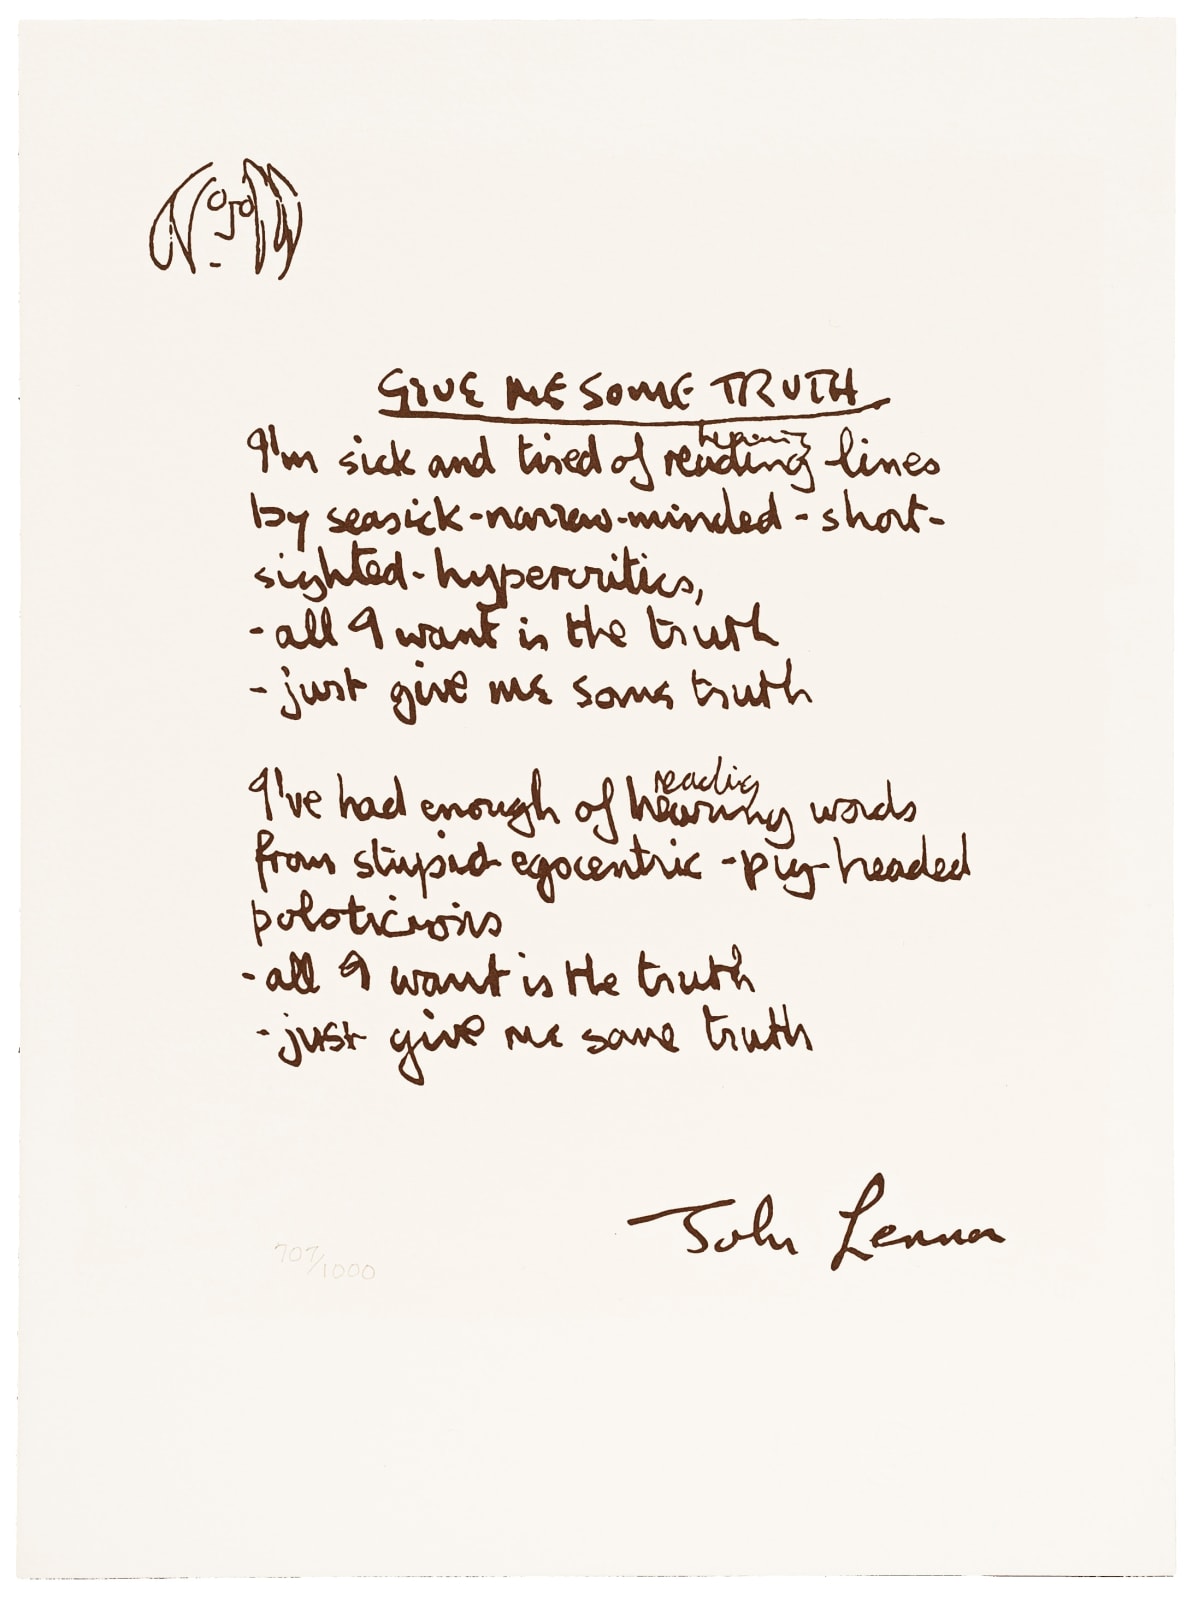 GIVE ME SOME TRUTH
hearing
I'm sick and tired of reading lines
by seasick-narrow-minded-short-
sighted-hypercritics,
-all I want is the truth
-just give me some truth
readig
I've had enough of hearing words
from stupid egocentric-pig-headed
poloticians
-all I want is the truth
-just give me some truth
John Lennon
707/1000